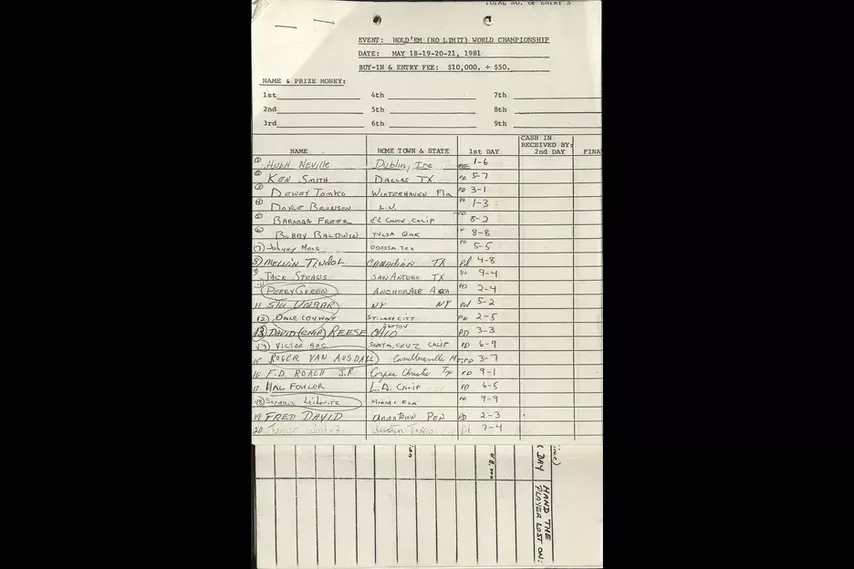 TOTAL NO. OF ENTRY'S
EVENT: HOLD'EM (NO LIMIT) WORLD CHAMPIONSHIP
DATE: MAY 18-19-20-21, 1981
BUY-IN & ENTRY FEE: $10,000. + $50.
NAME & PRIZE MONEY:
1st 4th 7th
2nd 5th 8th
3rd 6th 9th
NAME HOME TOWN & STATE 1st DAY CASH IN RECEIVED BY: 2nd DAY FINA
1 HUGH NEVILLE Dublin, Ire 1-6
2 KEN SMITH DALLAS TX PD 5-7
3 DEWEY TOMKO WINTERHAVEN Fla PD 3-1
4 DOYLE BRUNSON L.V. PD 1-3
5 BARBARA FREER EL CAJON, CALIF 8-2
6 BOBBY BALDWIN TULSA OAK 8-8
7 Johnny Moss ODESSA TEX PD 5-5
8 MELVIN TINDOL CANADIAN TX Pd 4-8
9 JACK STRAUS SAN ANTONE TX Pd 9-4
10 PERRY GREEN ANCHORAGE PD 2-4
11 STU UNGAR NY NY Pd 5-2
12 DALE CONWAY ST. LAKE CITY PD 2-5
13 DAVID (CHIP) REESE DAYTON OHIO PD 3-3
14 VICTOR SANTA, CRUZ CALIF PD 6-9
15 ROGER VAN AUSDALL PD 3-7
16 F.D. ROACH SR. Corpus Christi Tx PD 9-1
17 HAL FOWLER L.A. CALIF PD 6-5
18 Leibowitz MIAMI FLA PD 9-9
19 FRED DAVID PEN PD 2-3
20 Austin Texas Pd 7-4
DAY
HAND THE
PLAYER LOST ON: